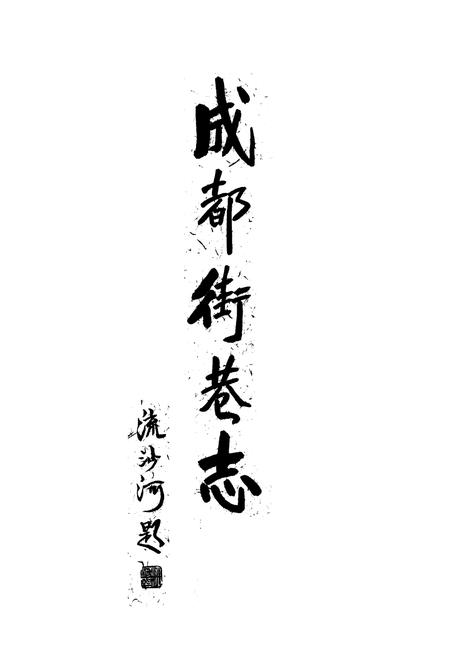 成都街巷志
流沙河题